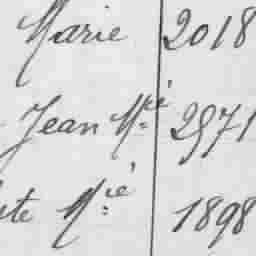 Marie 2018
Jean M.ié 2971
ite M.ié 1898